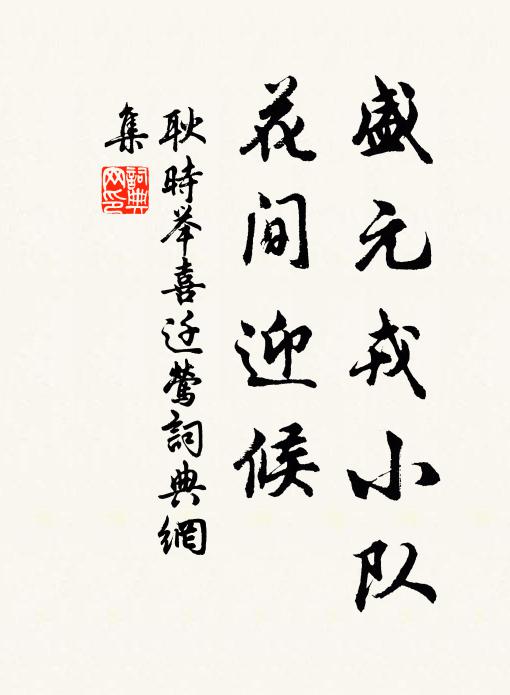 盛元戎小队
花间迎候
耿時举喜迁莺詞典網
集
詞典网印